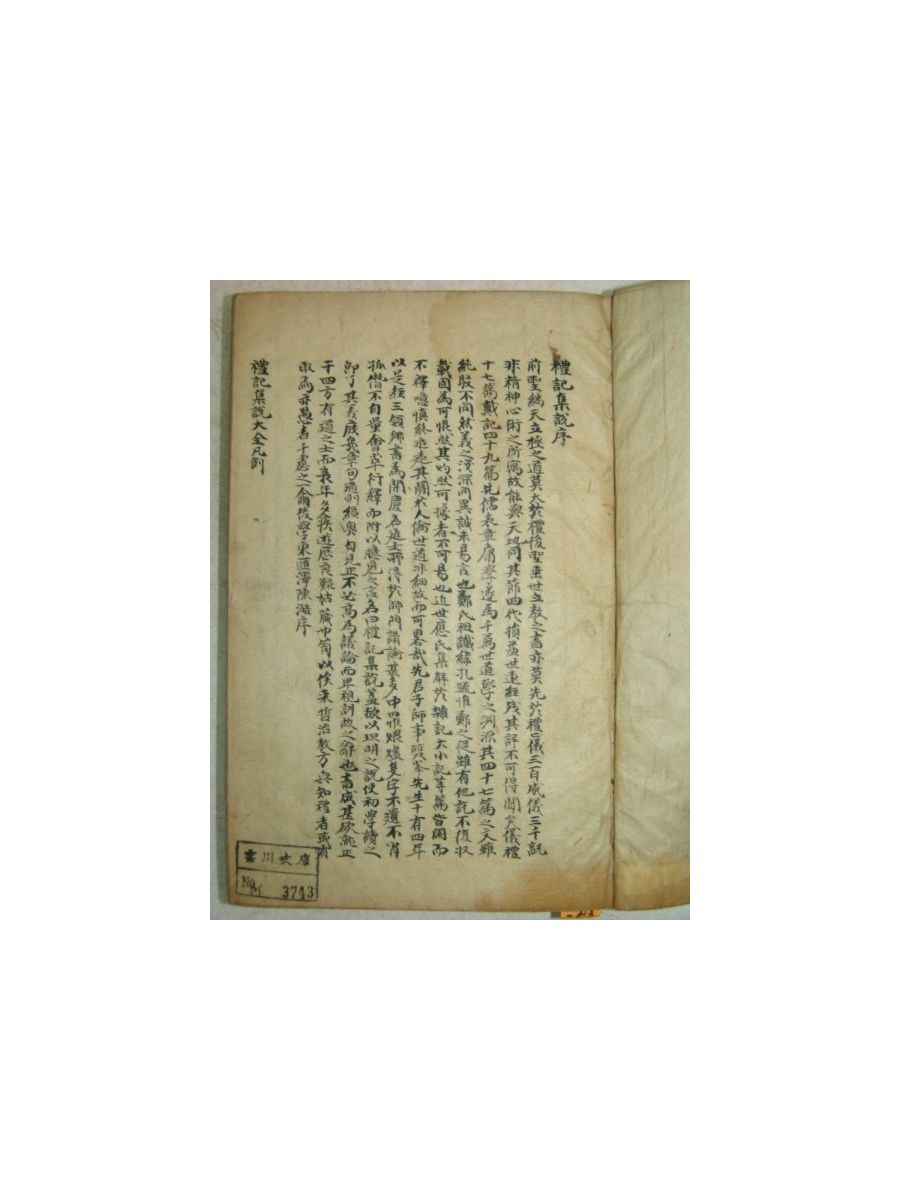 禮記集說序
前聖繼天立極之道莫大於禮後聖垂世立敎之書亦莫先於禮禮儀三百威儀三千孰
非精神心術之所寓故能與天地同其節四代損益世遠經殘其詳不可得聞矣儀禮
十七篇戴記四十九篇先儒表章庸學遂爲千萬世道學之淵源其四十七篇之文雖
純駁不同然義之淺深同異誠未易言也鄭氏祖讖緯孔疏惟鄭之從雖有他說不復收
載固爲可恨然其灼然可據者不可易也近世應氏集解於雜記大小記等篇皆闕而
不釋噫愼終追遠其關於人倫世道非細故而可畧哉先君子師事雙峯先生十有四年
以是經三領鄕書爲開慶名進士所得於師門講論甚多中罹煨燼隻字不遺不肖
孤僭不自量會萃衍繹而附以臆見之言名曰禮記集說蓋欲以坦明之說使初學讀之
卽了其義庶幾章句通則縕奧自見正不必高爲議論而卑視訓故之辭也書成甚欲就正
于四方有道之士而衰年多疾遊歷良艱姑藏巾笥以俟來哲治敎方興知禮者或有
取焉亦愚者千慮之一爾後學東匯澤陳澔序
禮記集說大全凡例
雲川文庫
No. 3743